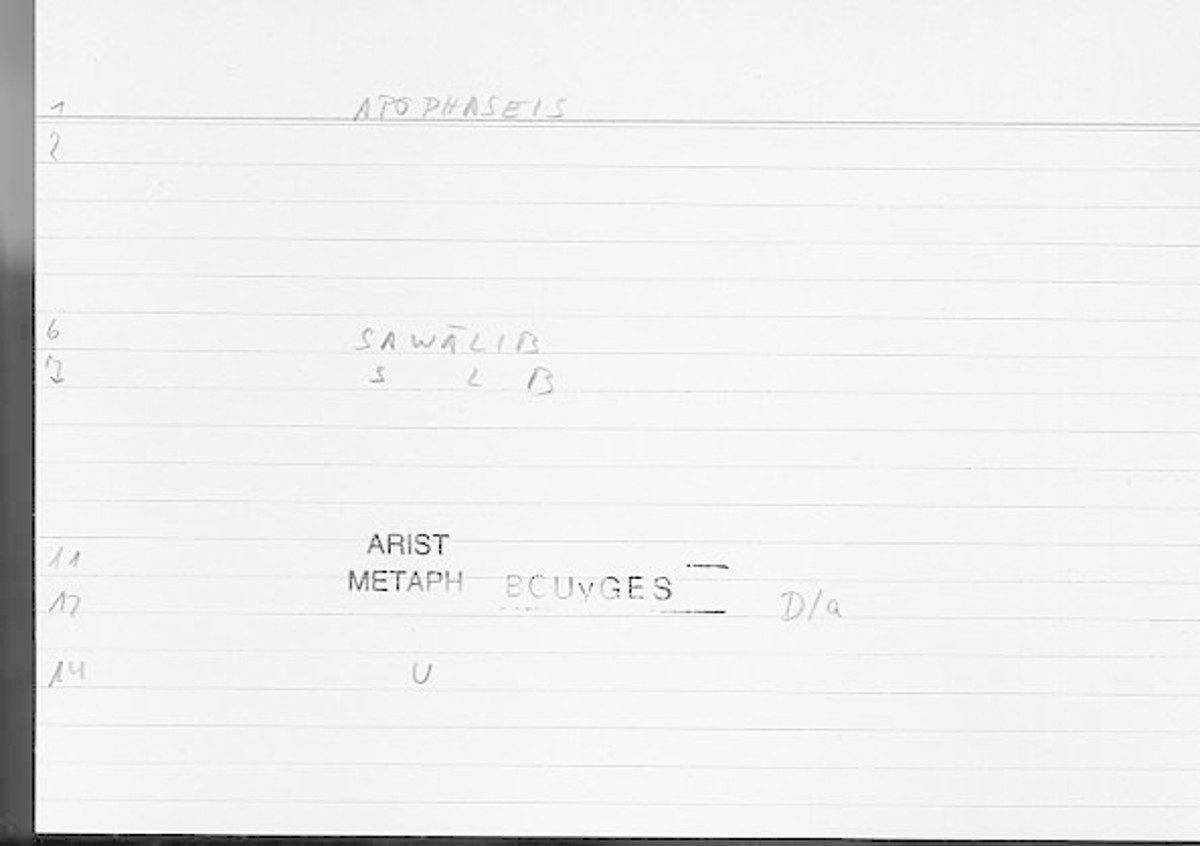 1 APOPHASEIS
2
6 SAWĀLIB
7 S L B
ARIST
11
METAPH BOUyGES
12 D/a
14 U